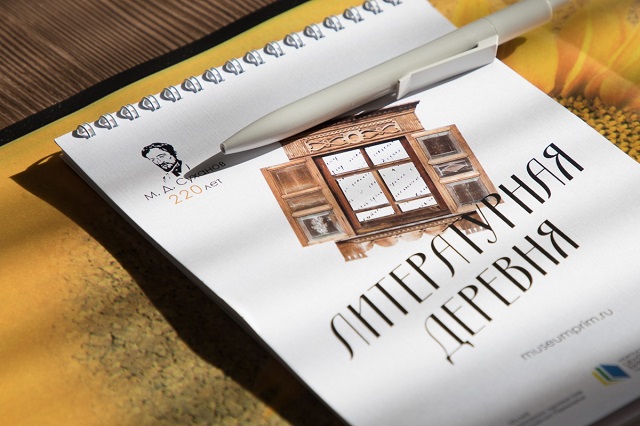 М. Д. Суханов
220 лет
ЛИТЕРАТУРНАЯ
ДЕРЕВНЯ
museumprim.ru